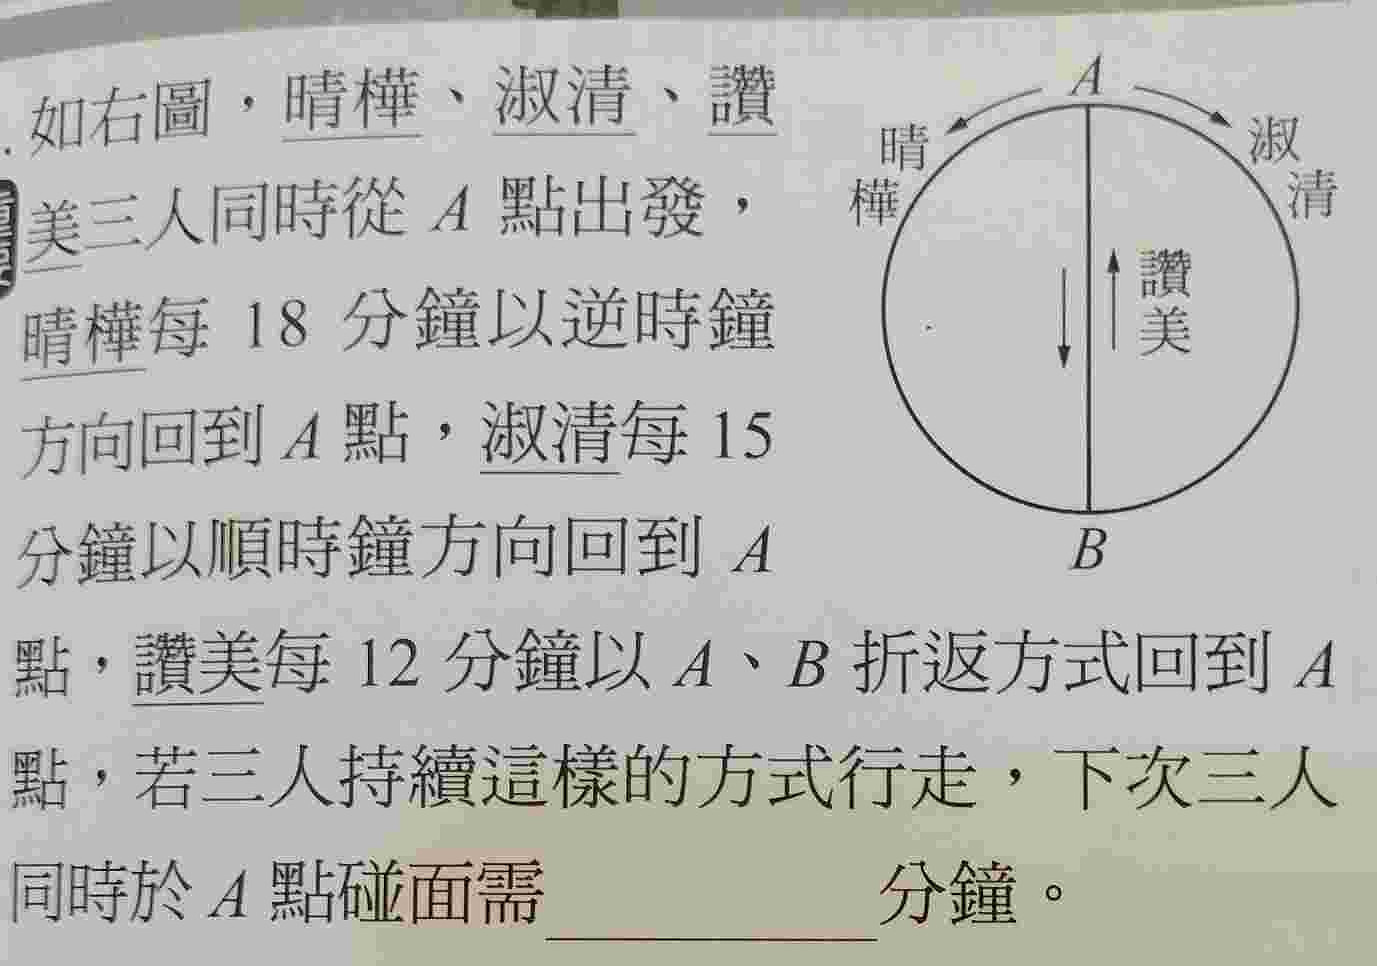 如右圖，晴樺、淑清、讚
美三人同時從 A 點出發，
晴樺每 18 分鐘以逆時鐘
方向回到 A 點，淑清每 15
分鐘以順時鐘方向回到 A
點，讚美每 12 分鐘以 A、B 折返方式回到 A
點，若三人持續這樣的方式行走，下次三人
同時於 A 點碰面需 分鐘。
A
晴樺
淑清
讚美
B